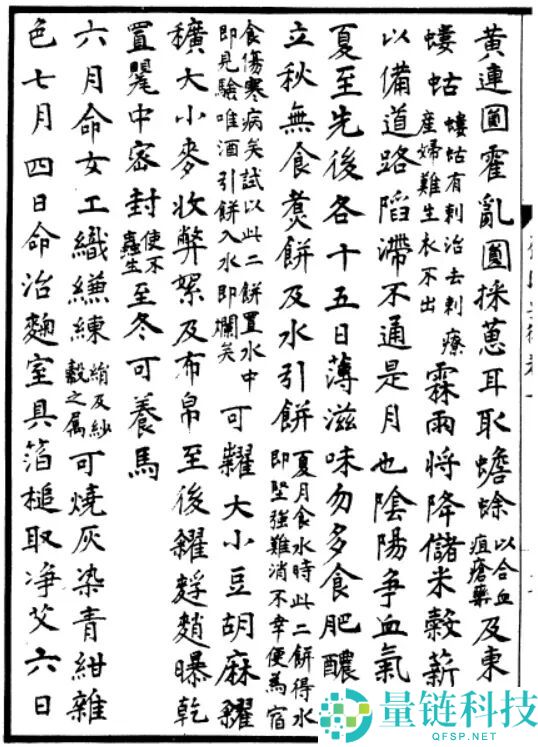 黃連圎霍亂圎採葸耳取蟾蜍以合血疽瘡藥及東
螻蛄螻蛄有刺治去刺療產婦難生衣不出霖雨將降儲米穀薪
以備道路陷滯不通是月也陰陽爭血氣
夏至先後各十五日薄滋味勿多食肥醲
立秋無食煑餅及水引餅夏月食水時此二餅得水即堅強難消不幸便為宿
食傷寒病矣試以此二餅置水中即見驗唯酒引餅入水即爛矣可糶大小豆胡麻糴
穬大小麥收弊絮及布帛至後糴䴸䴬曝乾
置甖中密封使不蟲生至冬可養馬
六月命女工織縑練絹及紗縠之屬可燒灰染青紺雜
色七月四日命治麴室具箔槌取净艾六日
量链科技
QFSP.NET